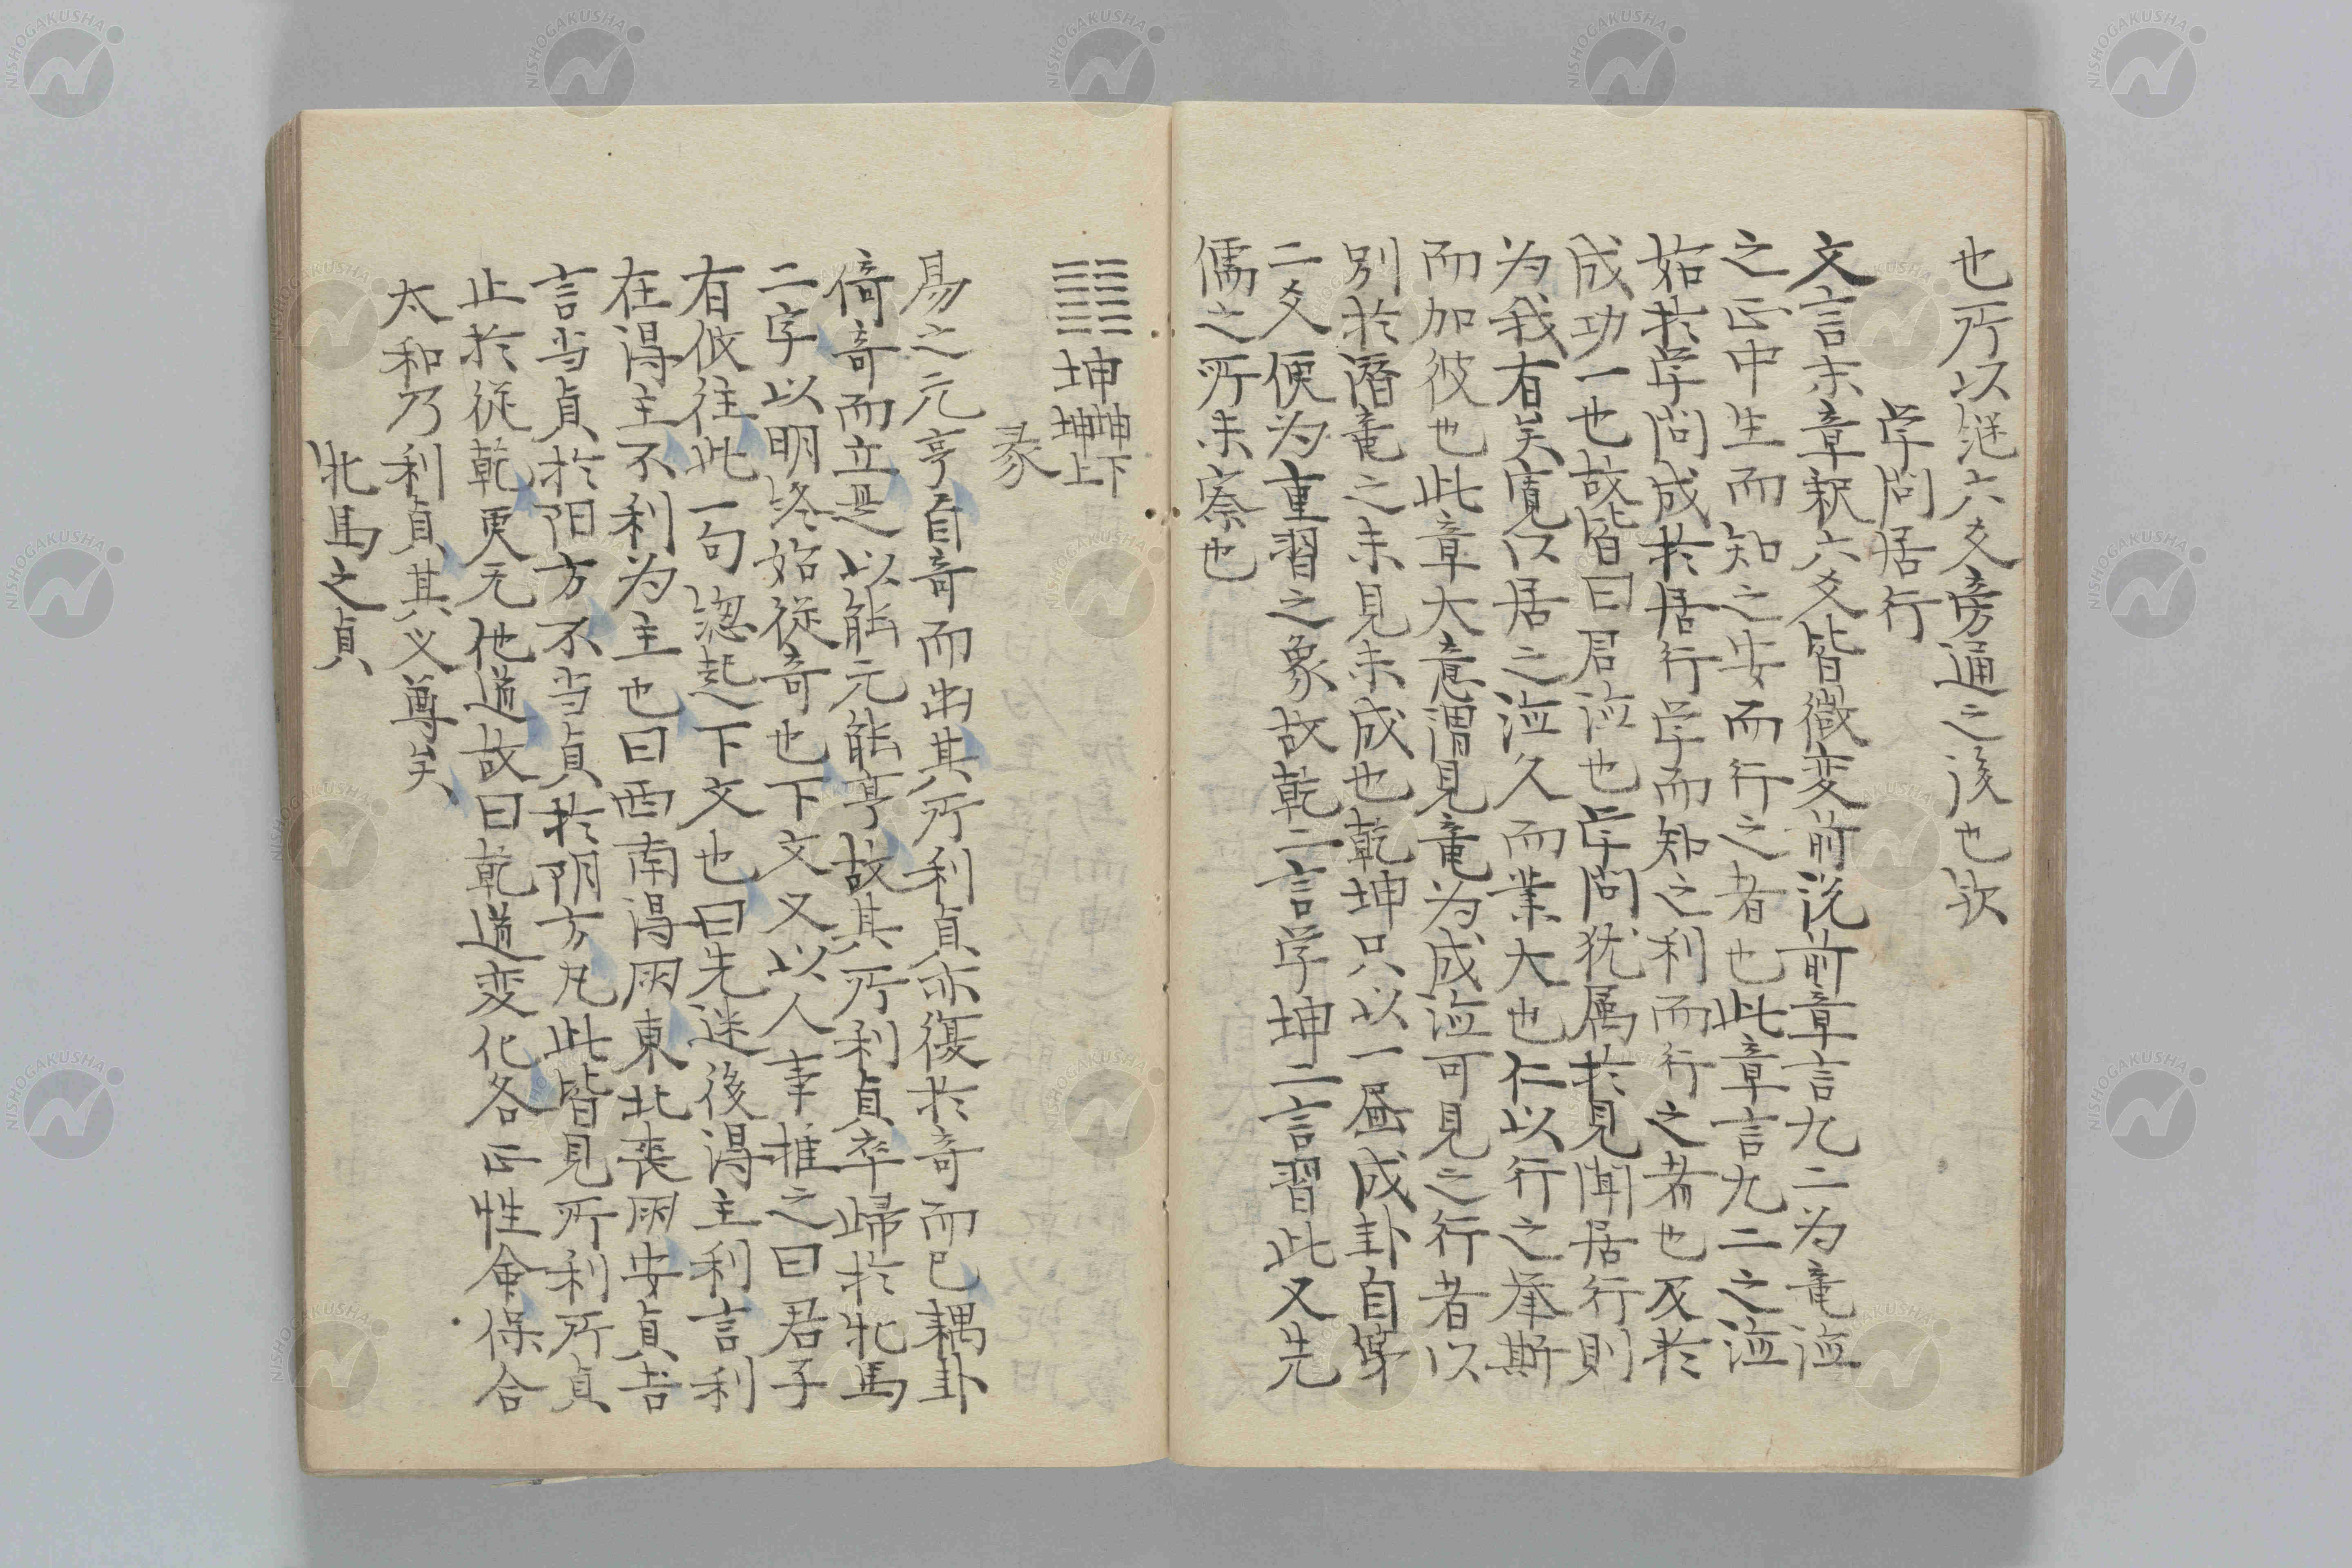 也所以継六爻旁通之後也欤
学問居行
文言末章釈六爻皆徴変前説前章言九二为竜涖
之正中生而知之安而行之者也此章言九二之涖
始於学問成於居行学而知之利而行之者也及於
成功一也故皆曰君涖也学問犹属於見聞居行則
为我有矣寛以居之涖久而業大也仁以行之挙斯
而加彼也此章大意謂見竜为成涖可見之行者以
別於潜竜之未見未成也乾坤只以一畳成卦自第
二爻便为重習之象故乾二言学坤二言習此又先
儒之所未察也
䷁坤坤下坤上
彖
易之元亨自奇而出其所利貞亦復於奇而已耦卦
倚奇而立是以能元能亨故其所利貞卒歸於牝馬
二字以明終始従奇也下文又以人事推之曰君子
有攸往此一句総起下文也曰先迷後得主利言利
在得主不利为主也曰西南得朋東北喪朋安貞吉
言当貞於阳方不当貞於阴方凡此皆見所利所貞
止於従乾更无他道故曰乾道変化各正性命保合
太和乃利貞其义尊矣
牝馬之貞
NISHOGAKUSHA